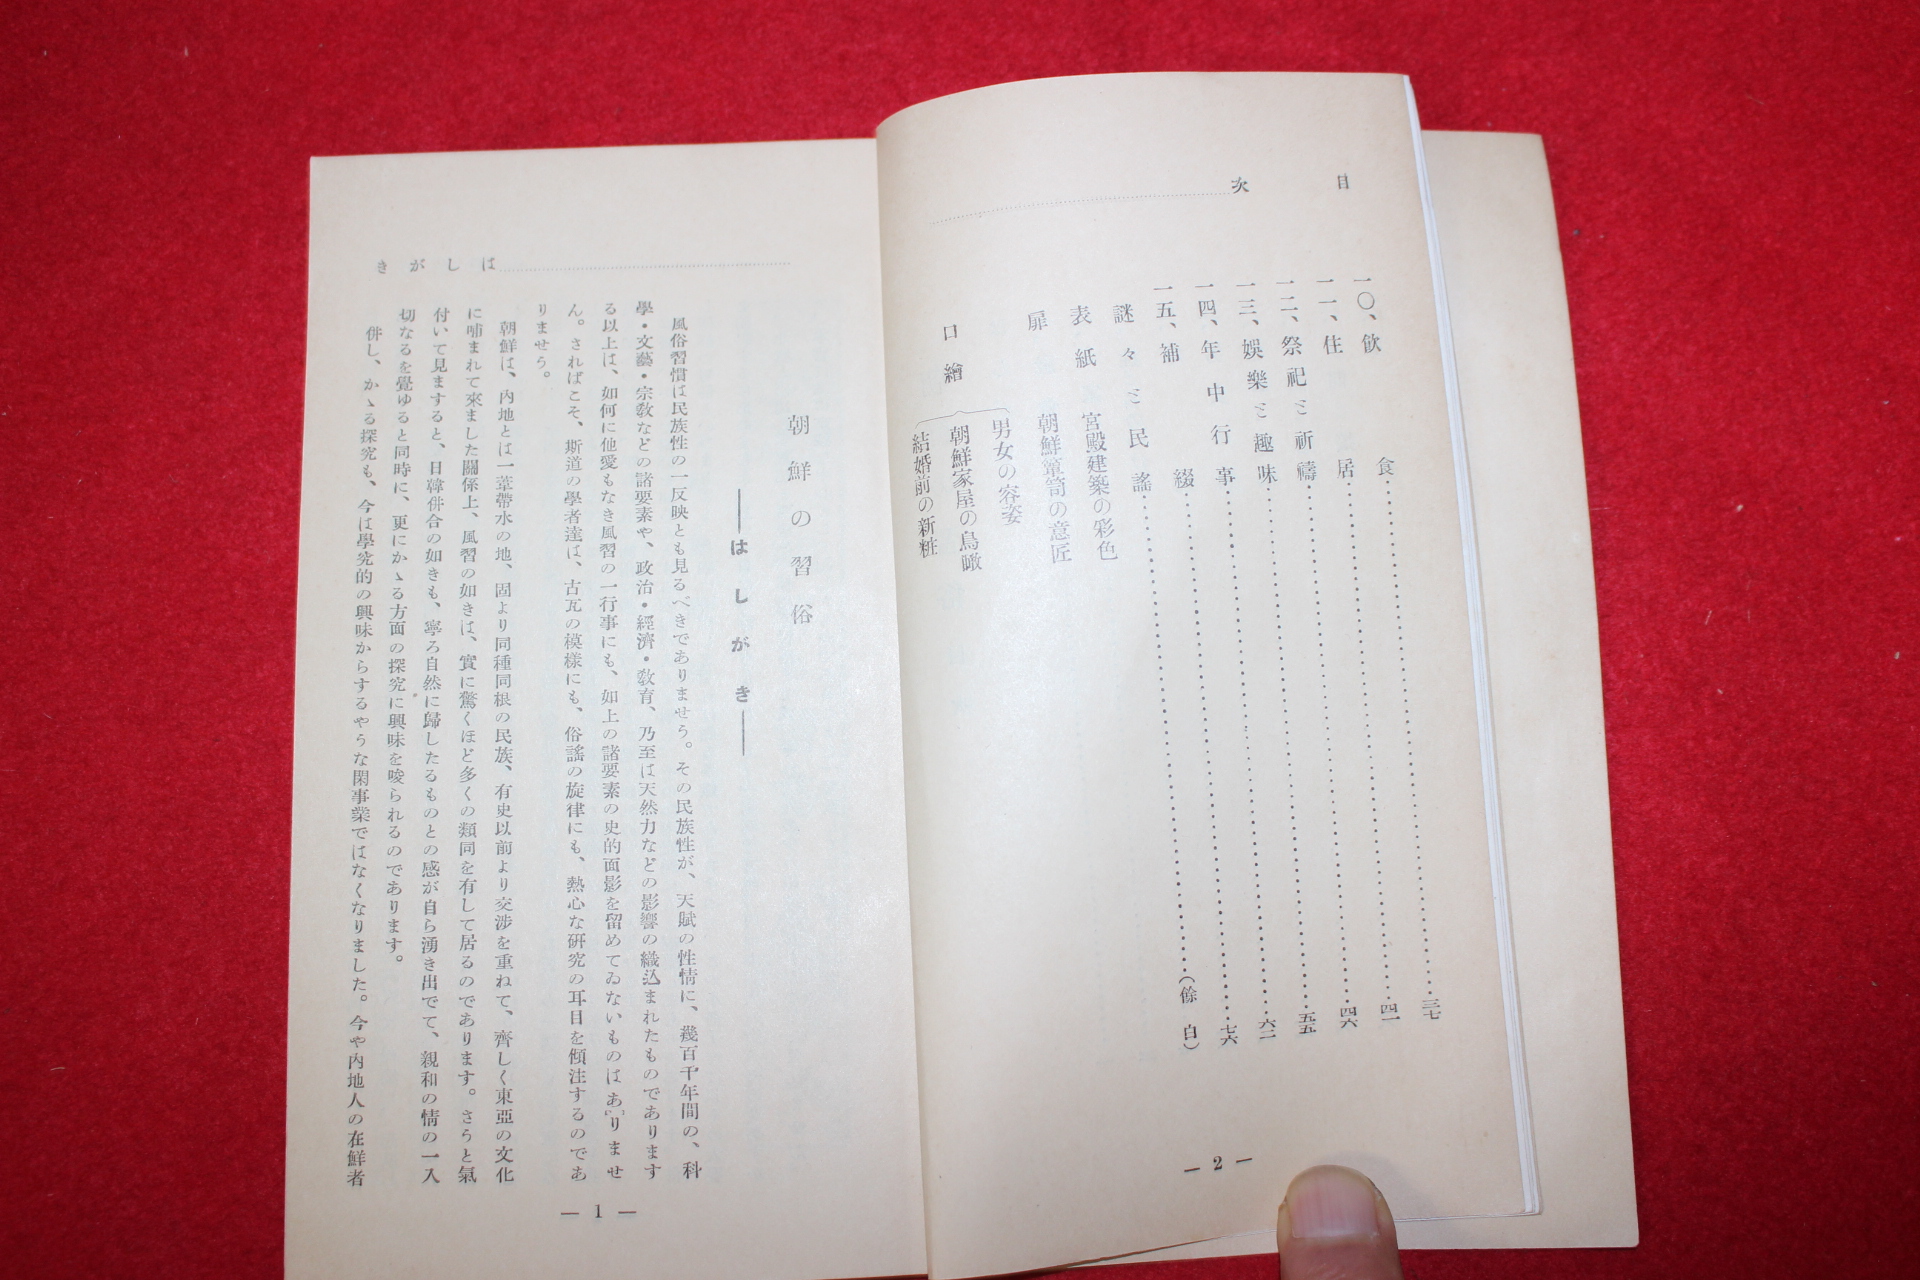 目次
一〇、飲食……三七
一一、住居……四一
一二、祭祀と祈禱……四六
一三、娯樂と趣味……五五
一四、年中行事……六二
一五、補綴……七六
謎々と民謠……(餘白)
表紙 宮殿建築の彩色
扉 朝鮮簞笥の意匠
口繪
男女の容姿
朝鮮家屋の鳥瞰
結婚前の新粧
— 2 —
はしがき
朝鮮の習俗
——はしがき——
風俗習慣は民族性の一反映とも見るべきでありませう。その民族性が、天賦の性情に、幾百千年間の、科
學・文藝・宗教などの諸要素や、政治・經濟・敎育、乃至は天然力などの影響の織込まれたものであります
る以上は、如何に他愛もなき風習の一行事にも、如上の諸要素の史的面影を留めてゐないものはありませ
ん。さればこそ、斯道の學者達は、古瓦の模樣にも、俗謠の旋律にも、熱心な硏究の耳目を傾注するのであ
りませう。
朝鮮は、內地とは一葦帶水の地、固より同種同根の民族、有史以前より交渉を重ねて、齊しく東亞の文化
に哺まれて來ました關係上、風習の如きは、實に驚くほど多くの類同を有して居るのであります。さらと氣
付いて見ますると、日韓併合の如きも、寧ろ自然に歸したるものとの感が自ら湧き出でて、親和の情の一入
切なるを覺ゆると同時に、更にかゝる方面の探究に興味を唆られるのであります。
併し、かゝる探究も、今は學究的の興味からするやうな閑事業ではなくなりました。今や內地人の在鮮者
— 1 —